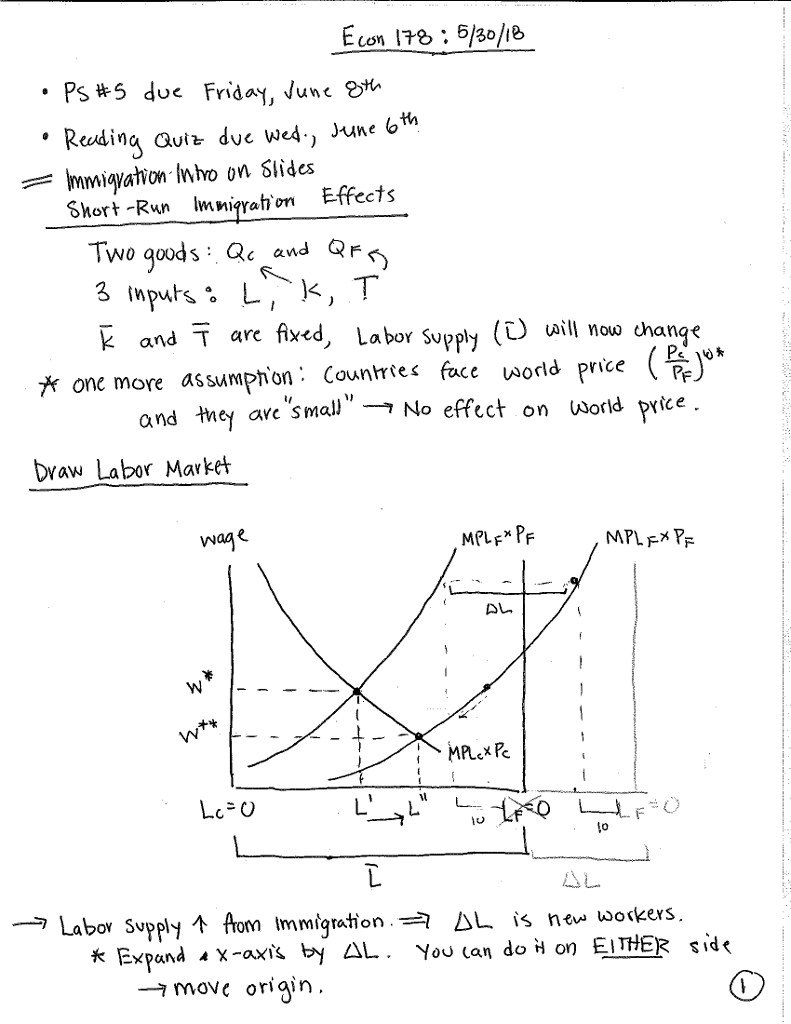 Econ 178 : 5/30/18
• PS #5 due Friday, June 8th
• Reading Quiz due Wed., June 6th
= Immigration Intro on Slides
Short-Run Immigration Effects
Two goods: Qc and QF
3 inputs: L, K, T
K̄ and T̄ are fixed, Labor Supply (L̄) will now change
* one more assumption: Countries face world price (Pc/PF)^w*
and they are "small" → No effect on world price.
Draw Labor Market
wage MPLF × PF MPLF × PF
ΔL
W*
W**
MPLc × Pc
Lc=0 L' → L" LF=0 LF=0
10 10
L̄ ΔL
→ Labor Supply ↑ from Immigration. ⇒ ΔL is new workers.
* Expand x-axis by ΔL. You can do it on EITHER side
→ move origin.
1